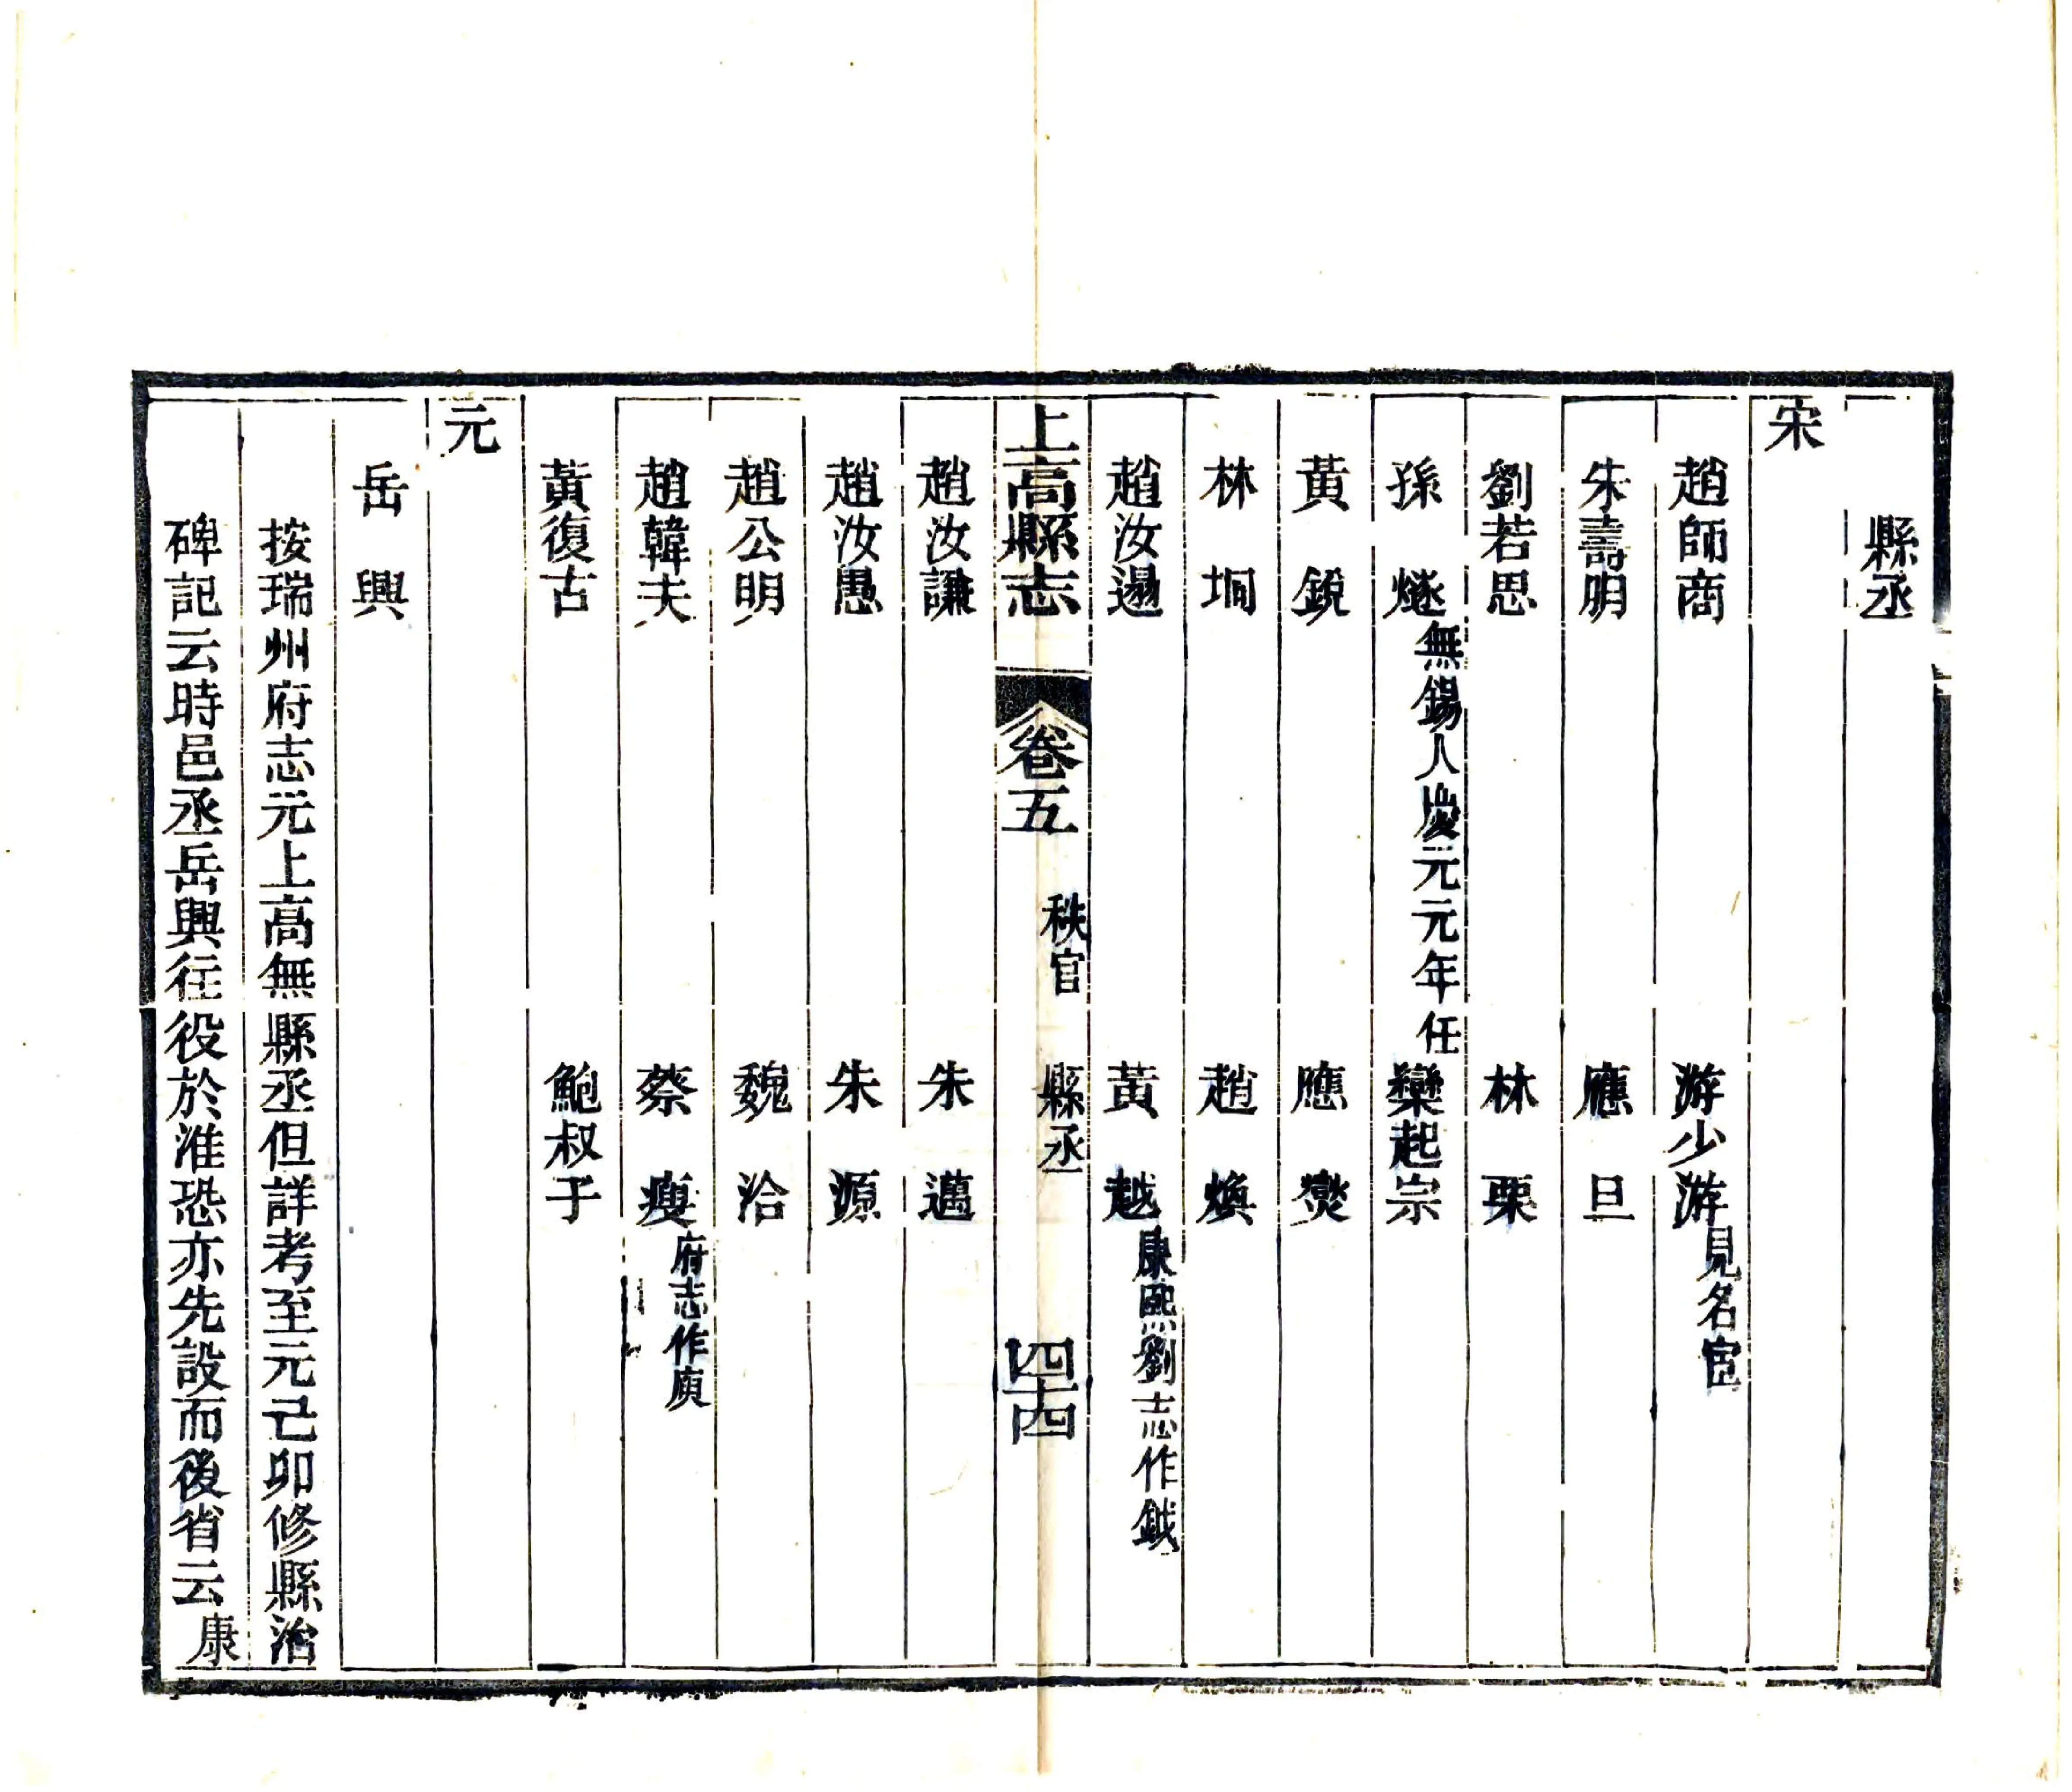 縣丞
宋
趙師商 游少游見名宦
朱壽明 應旦
劉若思 林栗
孫燧無錫人慶元元年任 欒起宗
黃銳 應爕
林坰 趙煥
趙汝逿 黃越康熙劉志作鉞
上高縣志 卷五 秩官 縣丞 四十四
趙汝謙 朱邁
趙汝愚 朱源
趙公明 魏洽
趙韓夫 蔡㾞府志作廋
黃復古 鮑叔于
元
岳興
按瑞州府志元上高無縣丞但詳考至元己卯修縣治
碑記云時邑丞岳興往役於淮恐亦先設而後省云康